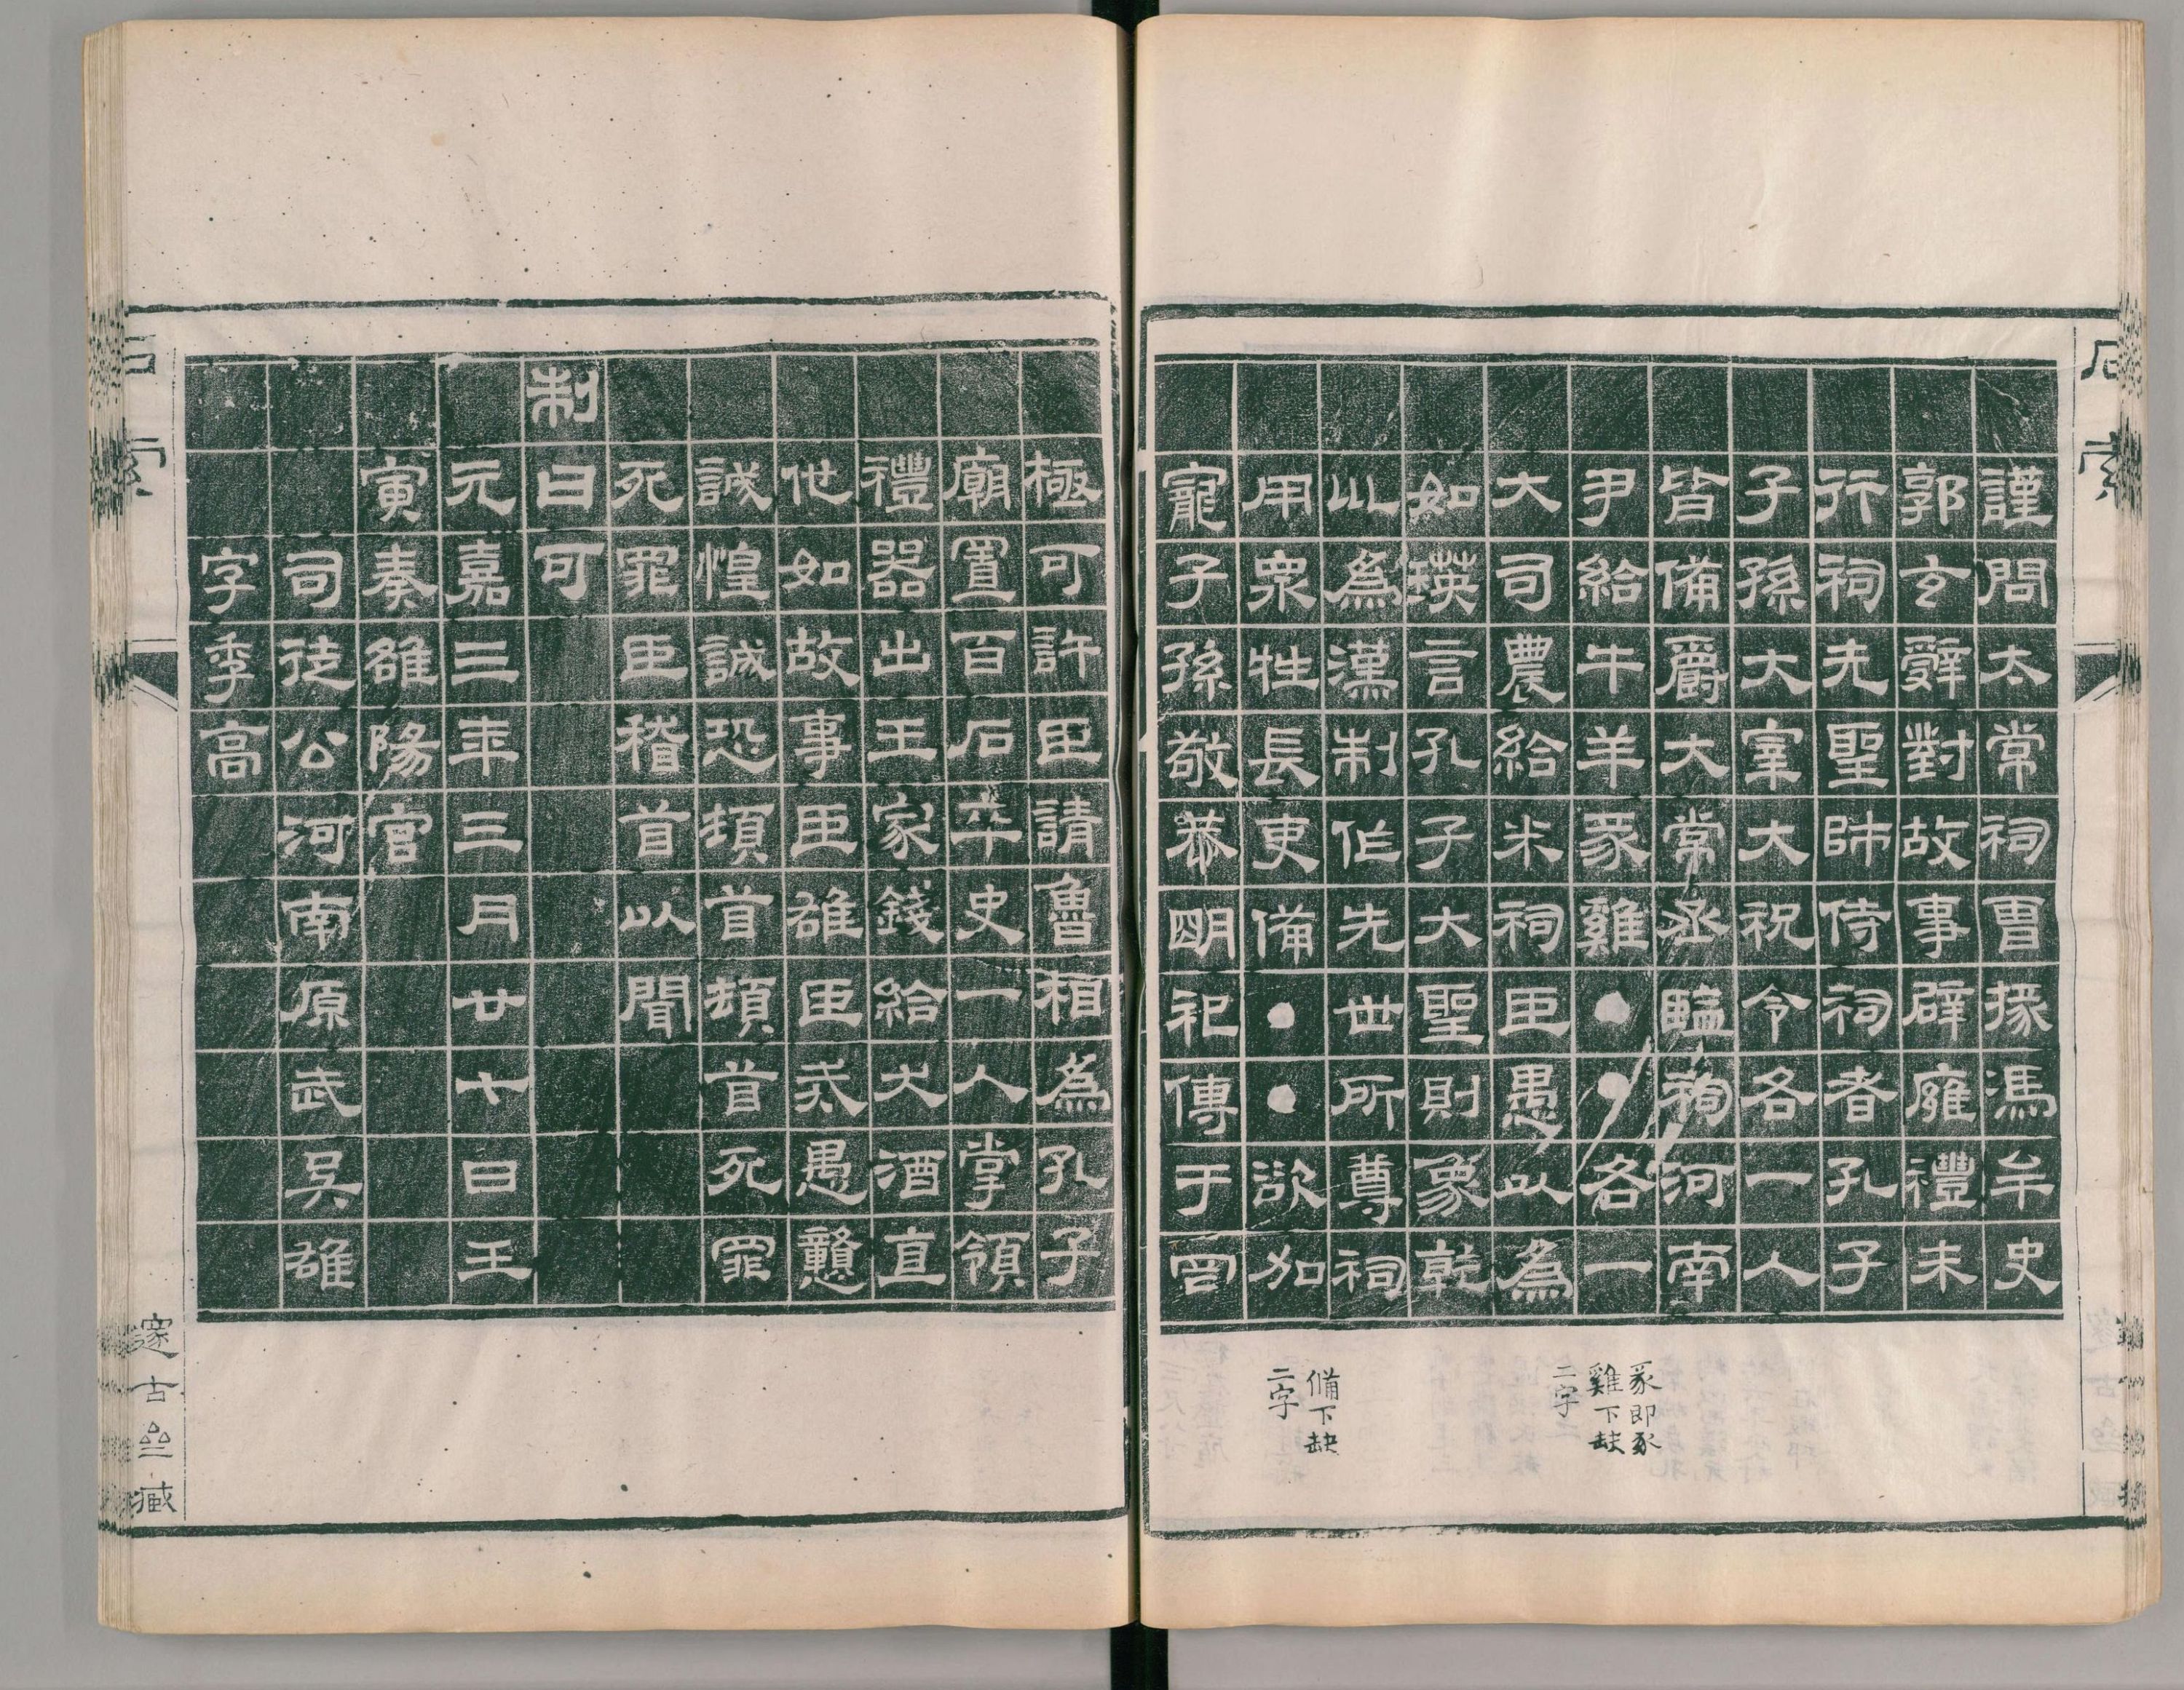 謹問太常祠曹掾馮牟史
郭玄辭對故事辟廱禮未
行祠先聖師侍祠者孔子
子孫大宰大祝令各一人
皆備爵大常丞臨祠河南
尹給牛羊豕雞●●各一
大司農給米祠臣愚以為
如瑛言孔子大聖則象乾
㠯為漢制作先世所尊祠
用衆牲長吏備●●欲加
寵子孫敬恭明祀傳于罔
豕即豕
雞下缺
二字
備下缺
二字
極可許臣請魯相為孔子
廟置百石卒史一人掌領
禮器出王家錢給犬酒直
他如故事臣雄臣戒愚戇
誠惶誠恐頓首頓首死罪
死罪臣稽首以聞
制曰可
元嘉三年三月廿七日壬
寅奏雒陽宮
司徒公河南原武吳雄
字季高
石索
邃古亝藏